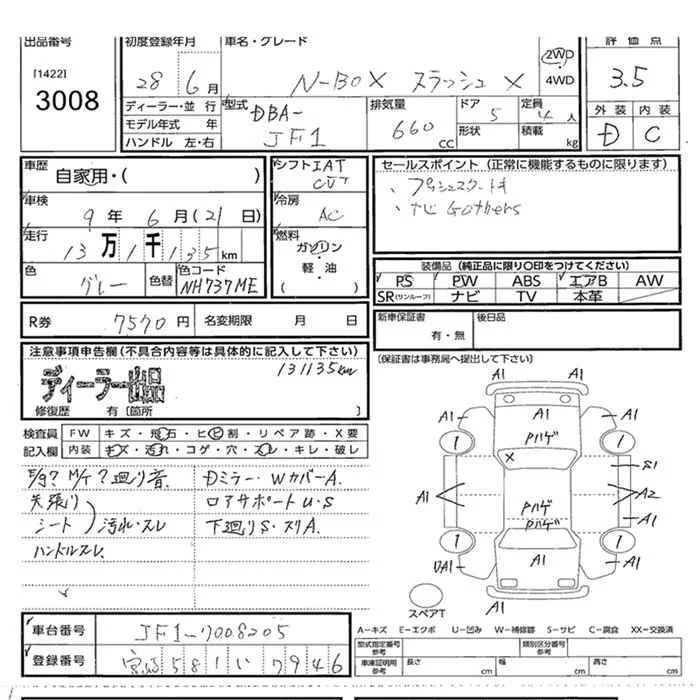 出品番号 初度登録年月 車名・グレード 評価点
[1422]
3008
28 6月 N-BOX スラッシュ X 2WD 4WD 3.5
ディーラー・並行 型式 DBA- 排気量 ドア 5 定員 4人 外装 内装
モデル年式 年 JF1 660 形状 積載 D C
ハンドル 左・右 CC kg
車歴 シフト IAT セールスポイント(正常に機能するものに限ります)
自家用・( ) CVT 、プッシュスタート
車検 冷房 、ナビ Gathers
9年 6月(21日) AC
走行 燃料
13万1千135km ガソリン
色 色替 色コード 軽・油 装備品(純正品に限り○印をつけてください)
グレー NH737ME ( ) PS PW ABS エアB AW
SR(サンルーフ) ナビ TV 本革
R券 7570円 名変期限 月 日 新車保証書 後日品
有・無
注意事項申告欄(不具合内容等は具体的に記入して下さい) (保証書は事務局へ提出して下さい)
131135km
ディーラー出品
修復歴 有〔箇所 〕
検査員 FW キズ・飛石・ヒビ割・リペア跡・X要
記入欄 内装 キズ・汚れ・コゲ・穴・スレ・キレ・破レ
廻り音 Dミラー・WカバーA.
天張り ロアサポートU・S
シート 汚れ・スレ 下廻りS・スリA.
ハンドルスレ
A1 A1
A1 A1 A1
1 Pハゲ 1
× S1
A1 Pハゲ A2
Pハゲ A1
1 1
UA1 A1 A1
A1
スペアT
車台番号 JF1-7008205 A―キズ E―エクボ U―凹み W―補修跡 S―サビ C―腐食 XX―交換済
型式指定番号 参考 類別区分番号 参考
登録番号 宮崎 581 い 7946 車庫証明用 参考 長さ cm 幅 cm 高さ cm